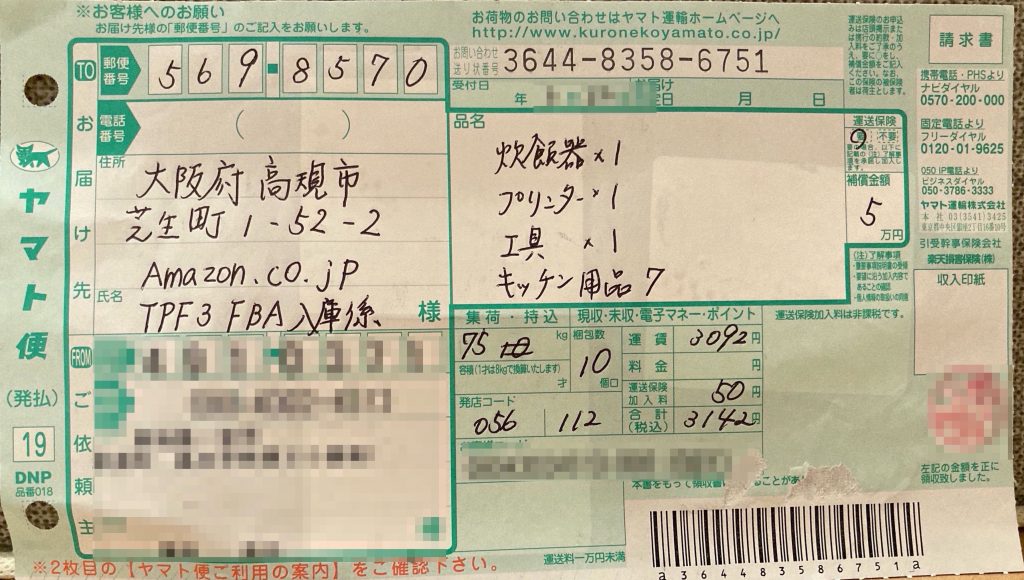 ※お客様へのお願い
お届け先様の「郵便番号」のご記入をお願いいたします。
お荷物のお問い合わせはヤマト運輸ホームページへ
http://www.kuronekoyamato.co.jp/
お問い合わせ
送り状番号 3644-8358-6751
受付日 年 月 日
TO 郵便番号 569-8570
電話番号 ( )
お届け先
住所
大阪府 高規市
芝生町 1-52-2
Amazon.co.jp
氏名
TPF3 FBA入庫係 様
品名
炊飯器×1
プリンター×1
工具 ×1
キッチン用品 7
運送保険
要 不要
補償金額
5万円
(注)了解事項
運送保険加入料は非課税です。
集荷・持込
75 kg
容積(1才は8kgで換算いたします)
才
梱包数
10個口
発店コード
056 112
現収・未収・電子マネー・ポイント
運賃 3092円
料金 円
運送保険加入料 50円
合計(税込) 3142円
FROM
ご依頼主
ヤマト便
(発払)
19
DNP
品番018
請求書
携帯電話・PHSより
ナビダイヤル
0570-200-000
固定電話より
フリーダイヤル
0120-01-9625
050 IP電話より
ビジネスダイヤル
050-3786-3333
ヤマト運輸株式会社
本社 03(3541)3425
東京都中央区銀座2丁目16番10号
引受幹事保険会社
楽天損害保険(株)
収入印紙
左記の金額を正に
領収致しました。
運送料一万円未満
※2枚目の【ヤマト便ご利用の案内】をご確認ください。
a364483586751a